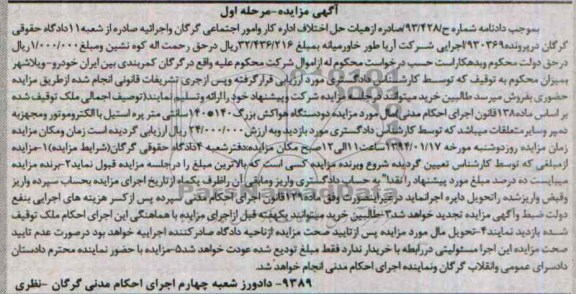 آگهی مزایده-مرحله اول
بموجب دادنامه شماره ح/۹۳/۴۲۸صادره ازهیات حل اختلاف اداره کار وامور اجتماعی گرگان واجرائیه صادره از شعبه ۱۱دادگاه حقوقی
گرگان درپرونده۹۳۰۳۶۹اجرایی شرکت آریا طور خاورمیانه بمبلغ ۳۲/۴۳۶/۲۱۶ریال درحق رحمت اله کوه نشین ومبلغ۱/۰۰۰/۰۰۰ریال
درحق دولت محکوم وبدهکاراست حسب درخواست محکوم له ازاموال شرکت محکوم علیه واقع در گرگان کمربندی بین ایران خودرو-ویلاشهر
بمیزان محکوم به توقیف که توسط کارشناس دادگستری مورد ارزیابی قرارگرفته وپس ازجری تشریفات قانونی انجام شده ازطریق مزایده
حضوری بفروش میرسد طالبین خرید میتوانند در جلسه مزایده شرکت وپیشنهاد خود راارائه وتسلیم نمایند(توصیف اجمالی ملک توقیف شده
بر اساس ماده۱۳۸قانون اجرای احکام مدنی)مال مورد مزایده دودستگاه هواکش بزرگ ۱۴۰*۱۴۰سانتی متر پره استیل باالکتروموتور ومجهزبه
دمپر وسایرمتعلقات میباشد که توسط کارشناس دادگستری مورد بازدید وبه ارزش ۲۴/۰۰۰/۰۰۰ریال ارزیابی گردیده است زمان ومکان مزایده
زمان مزایده روزدوشنبه مورخه ۱۳۹۴/۰۱/۱۷ساعت۱۱الی۱۲صبح مکان مزایده:دفترشعبه ۴دادگاه حقوقی گرگان(شرایط مزایده)۱-مزایده
ازمبلغی که توسط کارشناس تعیین گردیده شروع وبرنده مزایده کسی است که بالاترین مبلغ را درجلسه مزایده قبول نماید۲-برنده مزایده
میبایست ده درصد مبلغ مورد پیشنهاد را"نقدا" به حساب دادگستری واریز ومابقی آن راظرف یکماه ازتاریخ اجرای مزایده بحساب سپرده واریز
وقبض واریزشده راتحویل دایره اجرانماید درغیراینصورت وفق ماده۱۲۹قانون اجرای احکام مدنی سپرده پس ازکسر هزینه های اجرایی بنفع
دولت ضبط وآگهی مزایده تجدید خواهد شد۳-طالبین خرید میتوانند یکهفته قبل ازاجرای مزایده با هماهنگی این اجرای احکام ملک توقیف
شده بازدید نمایند۴-تحویل مال مورد مزایده پس ازتایید صحت مزایده ازناحیه دادگاه صادرکننده اجراییه خواهد بود درصورت عدم تایید
صحت مزایده این اجرا مسئولیتی دررابطه با خریدار ندارد فقط مبلغ تودیع شده عودت خواهد شد۵-مزایده با حضور نماینده محترم دادستان
دادسرای عمومی وانقلاب گرگان ونماینده اجرای احکام مدنی انجام خواهد شد.
۹۳۸۹- دادورز شعبه چهارم اجرای احکام مدنی گرگان -نظری